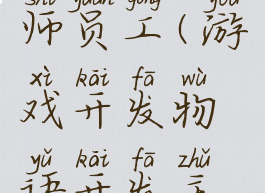 shī yuán gōng yóu
师员工(游
xì kāi fā wù
戏开发物
yǔ kāi fā zhǔ
语开发主